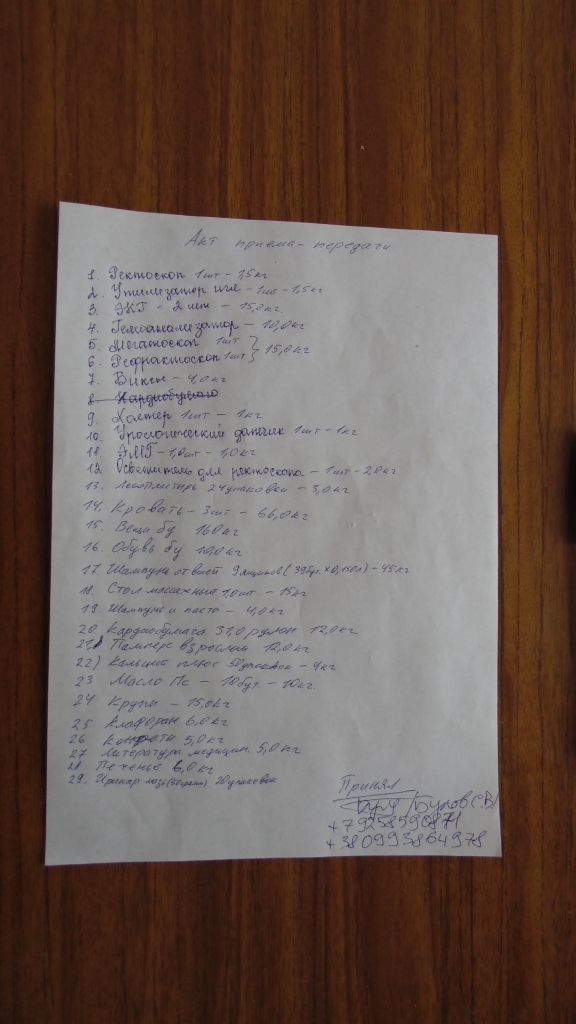 Акт приема-передачи
1. Ректоскоп 1шт - 1,5кг
2. Утилизатор игл - 1шт - 1,5кг
3. ЭКГ - 2шт. - 15,0кг.
4. Гемоанализатор - 10,0кг
5. Негатоскоп 1шт } 15,0кг
6. Рефрактоскоп 1шт
7. - 4,0кг
8 Кардиобумага
9. Холтер 1шт - 1кг
10. Урологический датчик 1шт - 1кг
11. ЭМГ - 1,0шт - 1,0кг
12 Осветитель для ректоскопа - 1шт - 2,0кг
13. Лейкопластырь 24упаковки - 3,0кг
14. Кровать - 3шт - 66,0кг
15. Вещи бу 160кг
16. Обувь бу 10,0кг
17. Шампунь от вшей 9 ящиков (39бут. х 0,150л) - 45кг
18. Стол массажный 1,0шт - 15кг
19. Шампунь и паста - 4,0кг
20. Кардиобумага 31,0 рулон 12,0кг
21) Памперс взрослый 12,0кг
22) Кальций плюс 50упаковок - 4кг
23 Масло - 10бут. - 10кг.
24 Крупы - 15,0кг
25 Клафоран 6,0кг
26 Конфеты 5,0кг
27 Литература медицин. 5,0кг
28 Печенье 6,0кг
29. мазь 20упаковок
Принял
/Булов С.В/
+79258590871
+380993864978